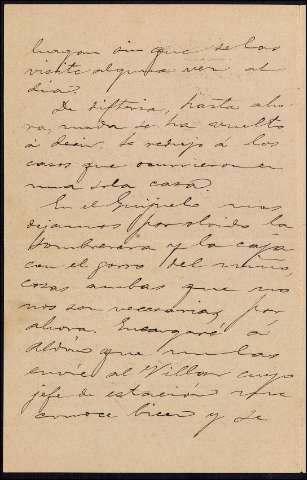 hurgan sin que se las
visite alguna vez al
día?
De difteria, hasta aho-
ra, nada se ha vuelto
á decir, se redujo á los
casos que ocurrieron en
una sola casa.
En el Guijuelo nos
dejamos por olvido la
sombrerera y la caja
con el gorro del niño,
cosas ambas que no
nos son necesarias por
ahora. Encargaré á
que me las
envíe al Villar cuyo
jefe de estación me
conoce bien y se